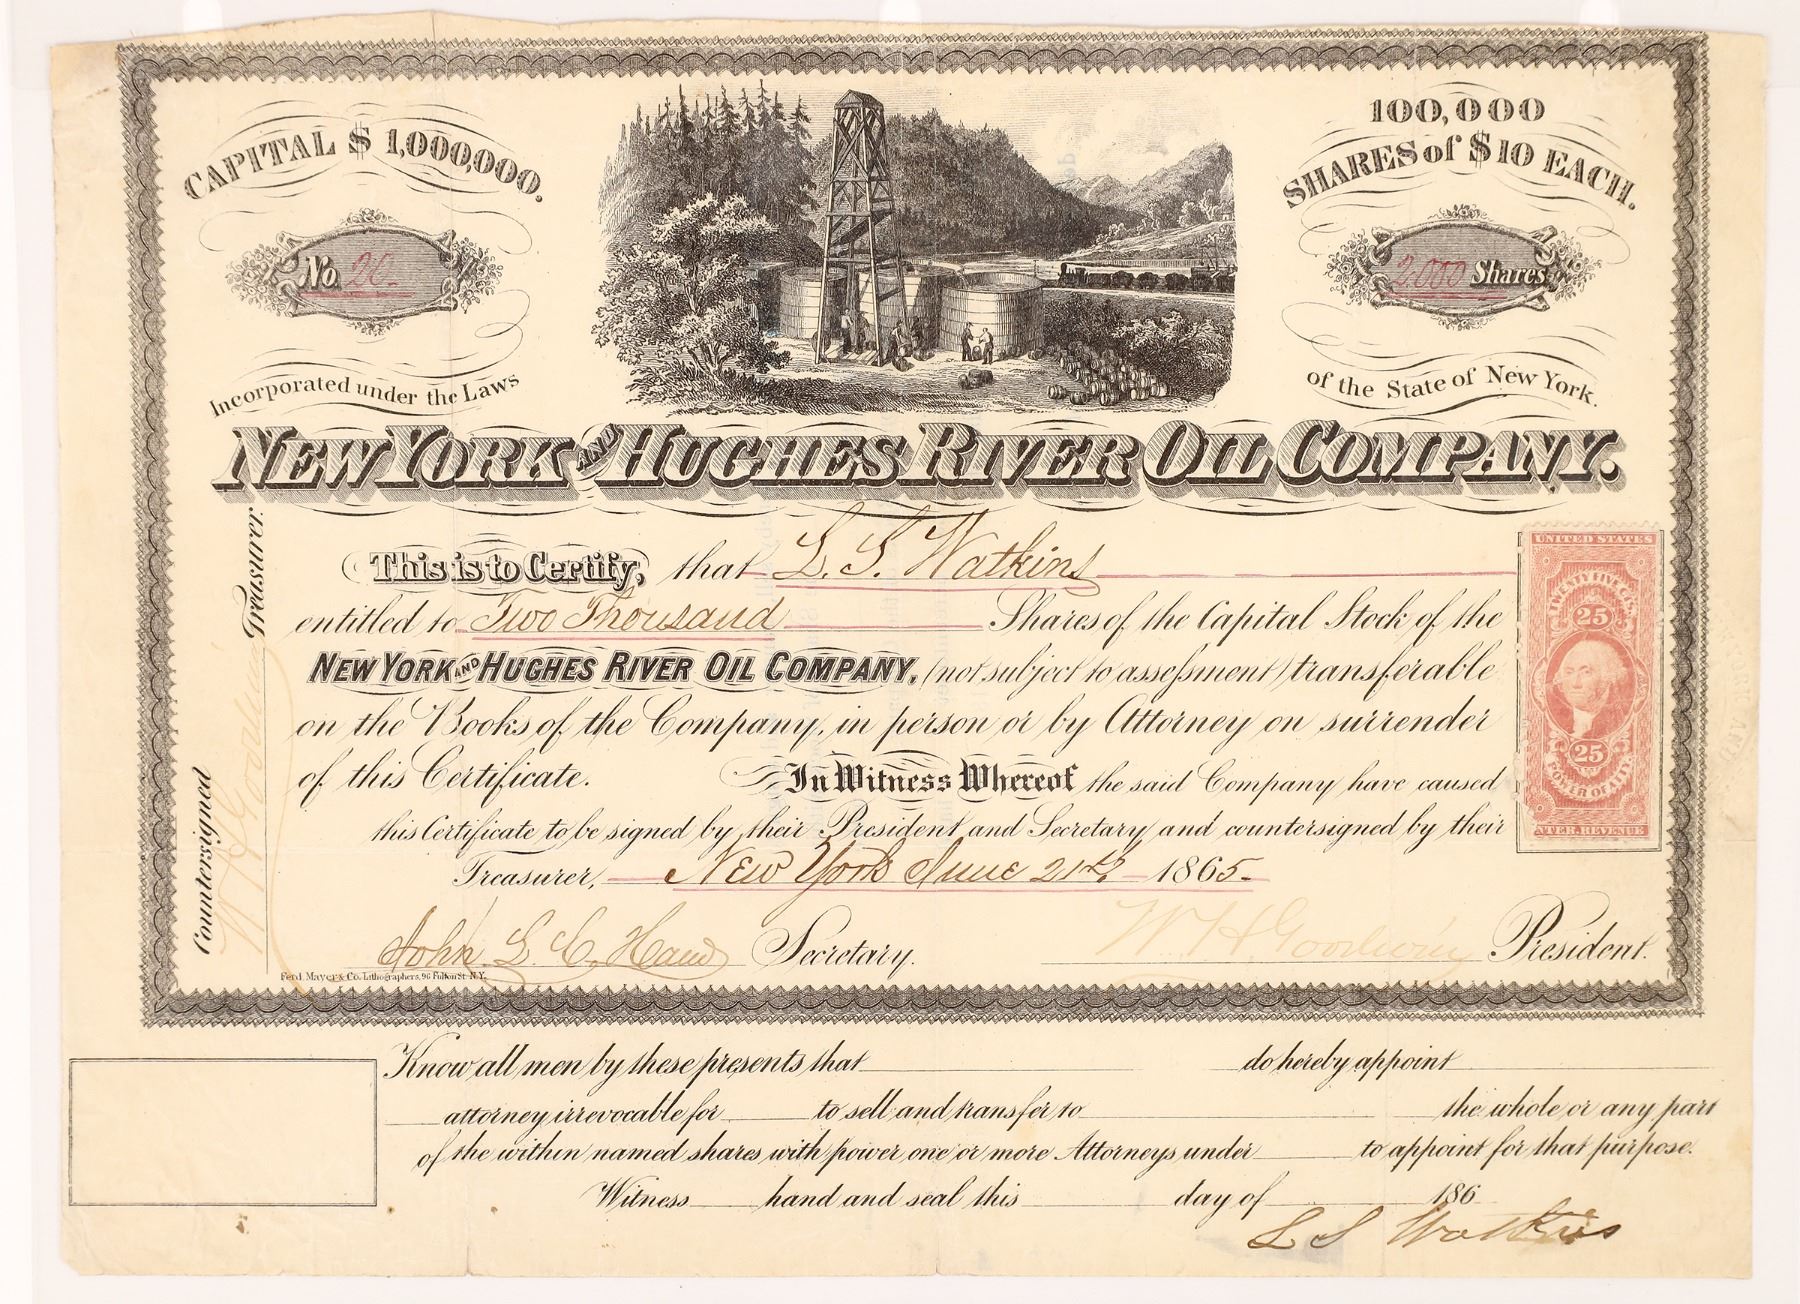 CAPITAL $ 1,000,000.
100,000
SHARES of $10 EACH.
No. 20.
2.000 Shares
Incorporated under the Laws
of the State of New York.
NEW YORK AND HUGHES RIVER OIL COMPANY.
This is to Certify, that L. S. Watkins
entitled to Two Thousand Shares of the Capital Stock of the
NEW YORK AND HUGHES RIVER OIL COMPANY, (not subject to assessment) transferable
on the Books of the Company, in person or by Attorney on surrender
of this Certificate. In Witness Whereof the said Company have caused
this Certificate to be signed by their President and Secretary and countersigned by their
Treasurer, New York June 21st 1865.
John L. C. Hand Secretary. W H Goodwin President.
Ferd. Mayer & Co. Lithographers, 96 Fulton St. N.Y.
Countersigned W H Goodwin Treasurer.
UNITED STATES
TWENTY FIVE CTS.
25
25
POWER OF ATT'Y.
INTER. REVENUE
Know all men by these presents that do hereby appoint
attorney irrevocable for to sell and transfer to the whole or any part
of the within named shares with power one or more Attorneys under to appoint for that purpose.
Witness hand and seal this day of 186
L S Watkins